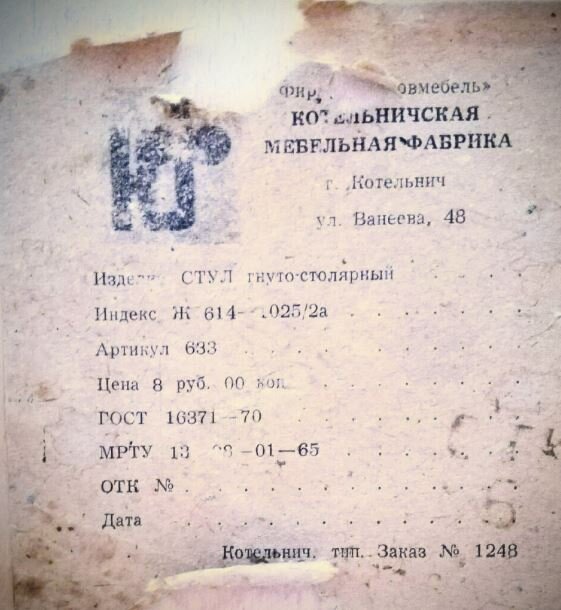 КОТЕЛЬНИЧСКАЯ
МЕБЕЛЬНАЯ ФАБРИКА
г. Котельнич
ул. Ванеева, 48
СТУЛ гнуто-столярный
Индекс Ж
Артикул 633
Цена 8 руб. 00 коп.
ГОСТ 16371—70
МРТУ 13
ОТК №
Дата
Котельнич. тип. Заказ № 1248